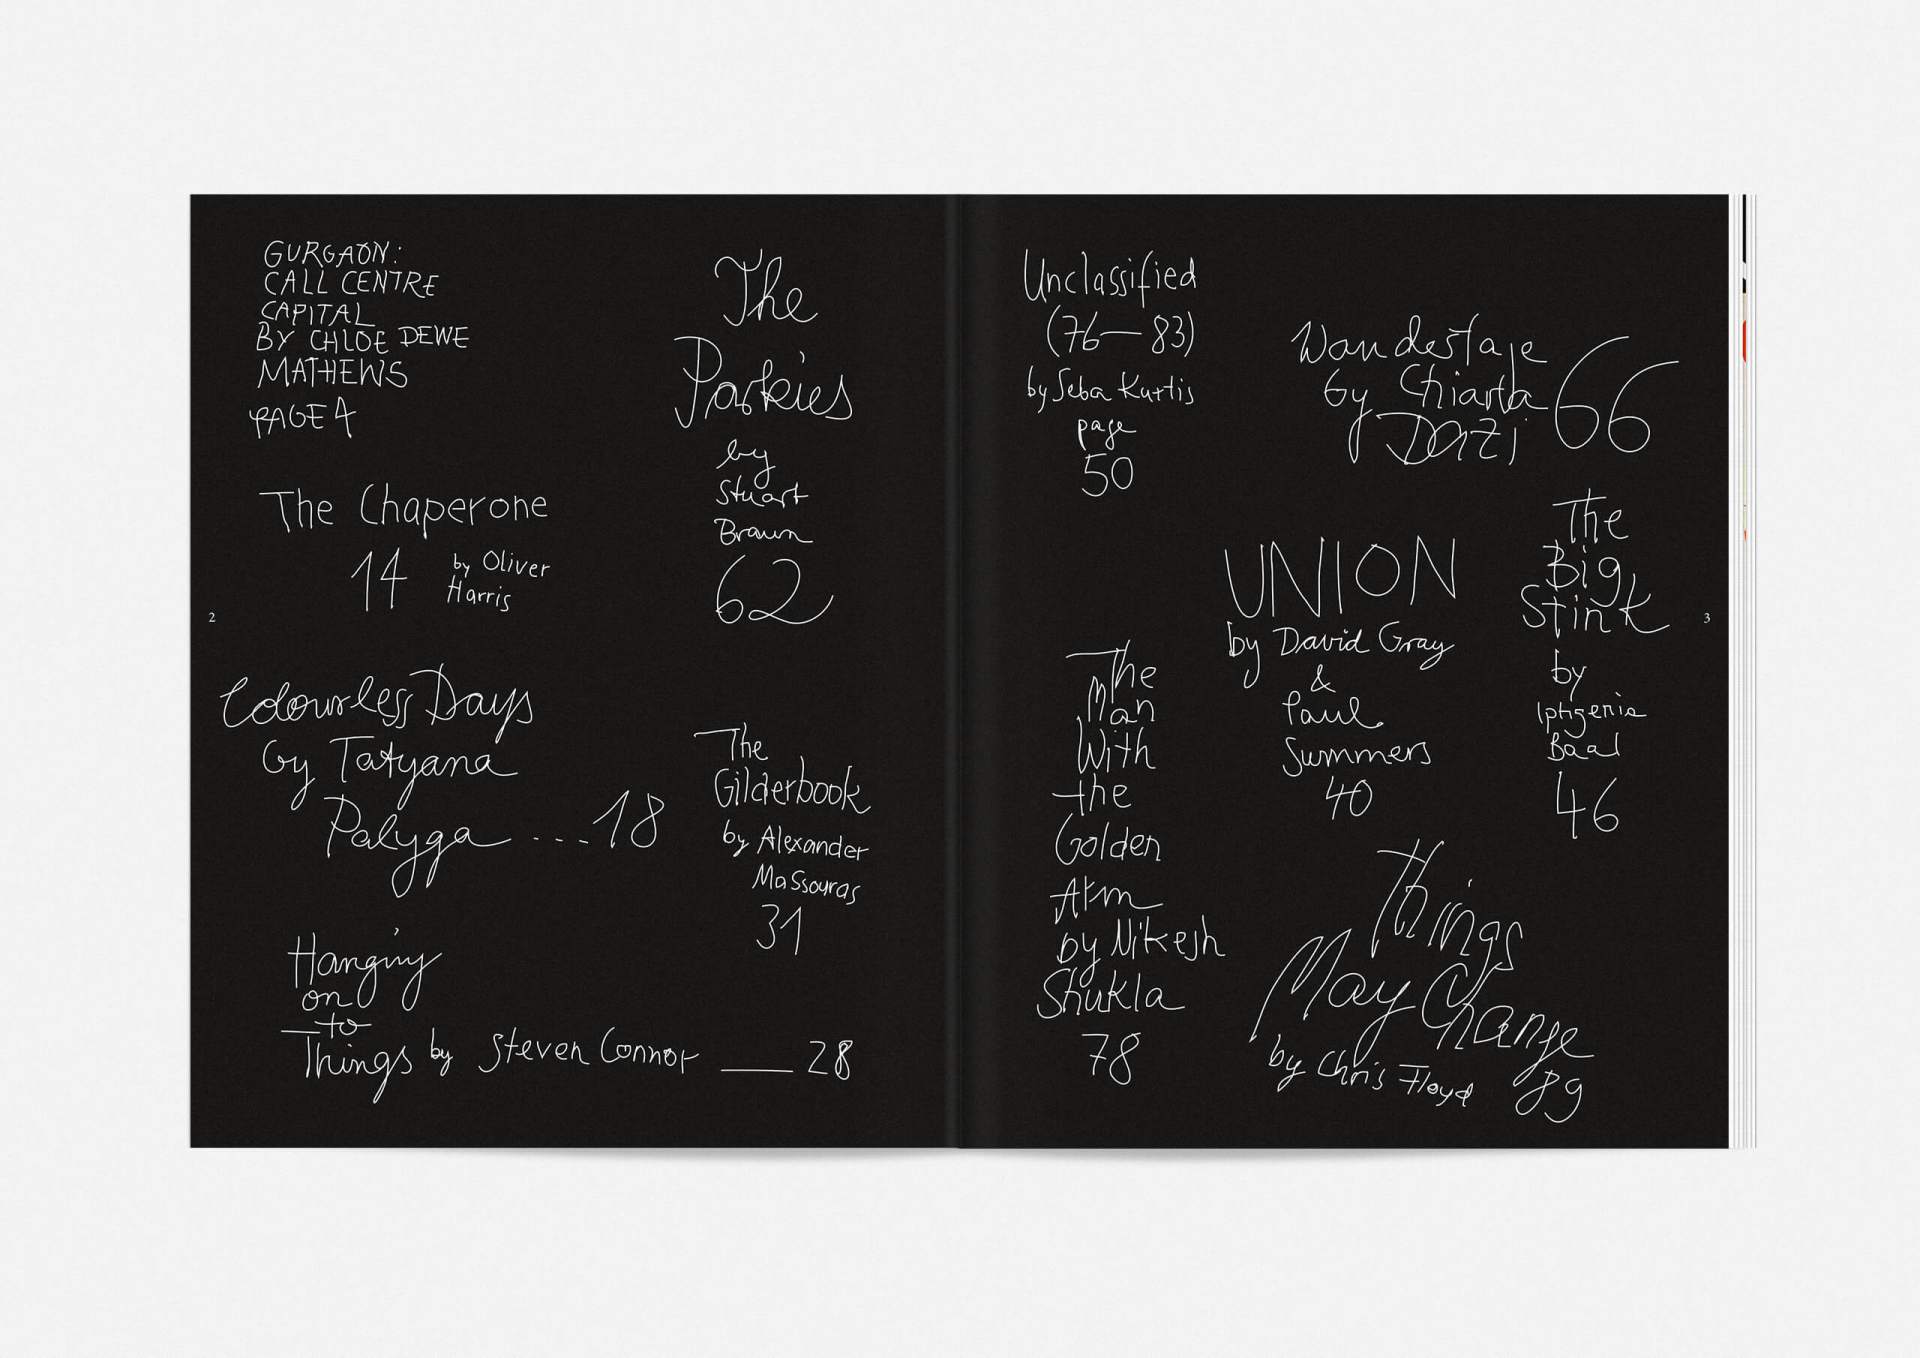 GURGAON:
CALL CENTRE
CAPITAL
BY CHLOE DEWE
MATHEWS
PAGE 4
The Chaperone
14
by Oliver
Harris
2
Colourless Days
by Tatyana
Palyga ---18
Hanging
on
to
Things by Steven Connor — 28
The
Parkies
by
Stuart
Braun
62
The
Gilderbook
by Alexander
Massouras
31
Unclassified
(76—83)
by Seba Kurtis
page
50
Wanderstaje
by Chiara
Dazi
66
UNION
by David Gray
&
Paul
Summers
40
The
Big
Stink
by
Iphgenia
Baal
46
3
The
Man
With
the
Golden
Arm
by Nikesh
Shukla
78
Things
May Change
by Chris Floyd
89